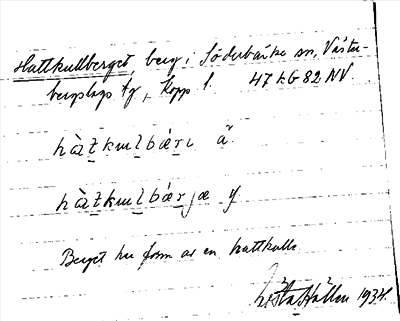 Hattkullberget, berg i Söderbärke sn, Väster-
bergslags tg, Kopp l. 47 kG 82 NV.
hàṯkuḻbæ̀ṟı ä.
hàṯkuḻbæ̀ṟjæ y.
Berget har form av en hattkulle
Hallén 1934.